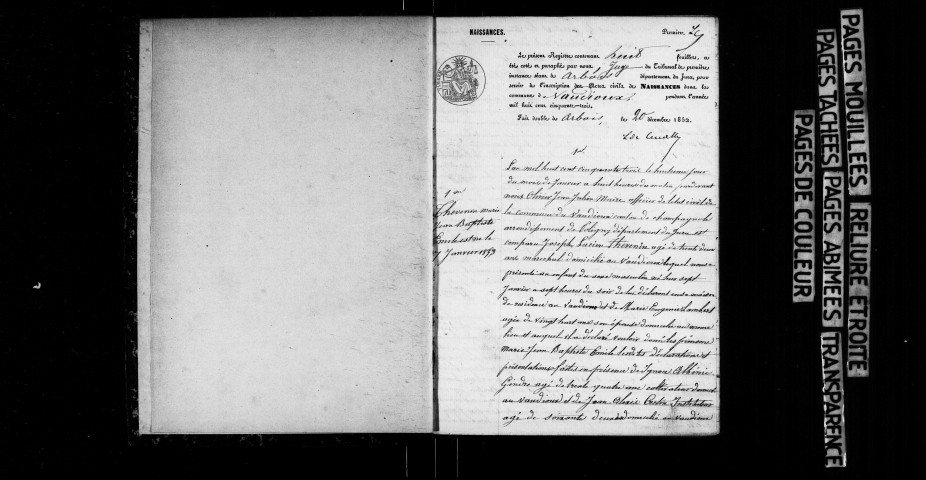 NAISSANCES.
Premier.
Le présent Registre contenant huit feuillets, a
été coté et paraphé par nous Juge du Tribunal de première
instance séant à Arbois département du Jura, pour
servir à l'inscription des Actes civils de NAISSANCES dans la
commune d Vaudioux pendant l'année
mil huit cent cinquante-trois.
Fait double à Arbois, le 20 décembre 1852.
1er
Thevenin Marie
Jean Baptiste
Emile est né le
7 Janvier 1853
L'an mil huit cent cinquante trois le huitieme jour
du mois de Janvier a huit heures du matin pardevant
nous Olivier Jean Julien Maire officier de l'etat civil de
la commune du Vaudioux canton de champagnole
arrondissement de Poligny département du Jura est
comparu Joseph Lucien Thevenin agé de trente deux
ans marechal domicilié au Vaudioux lequel nous a
présenté un enfant du sexe masculin né hier sept
Janvier a sept heures du soir de lui déclarant en sa maison
de residence au Vaudioux et de Marie Eugenie Lambert
agée de vingt huit ans son épouse domiciliée au même
lieu et auquel il a déclaré vouloir donner les prénoms
Marie Jean Baptiste Emile les dites déclaration et
présentation faites en présence de Ignace
Gindre agé de trente quatre ans cultivateur domicilié
au Vaudioux et de Jean Alexis Instituteur
agé de soixante deux ans domicilié au Vaudioux
PAGES MOUILLEES RELIURE ETROITE
PAGES TACHEES PAGES ABIMEES TRANSPARENCE
PAGES DE COULEUR